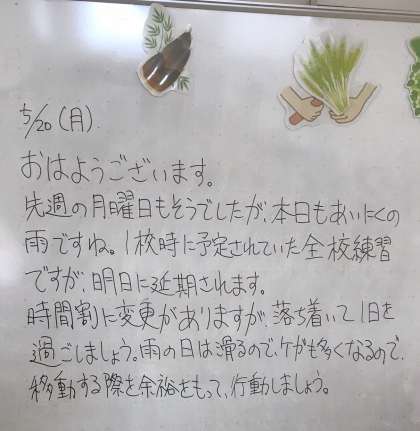 5/20(月)
おはようございます。
先週の月曜日もそうでしたが、本日もあいにくの
雨ですね。1校時に予定されていた全校練習
ですが、明日に延期されます。
時間割に変更がありますが、落ち着いて1日を
過ごしましょう。雨の日は滑るので、ケガも多くなるので、
移動する際を余裕をもって、行動しましょう。